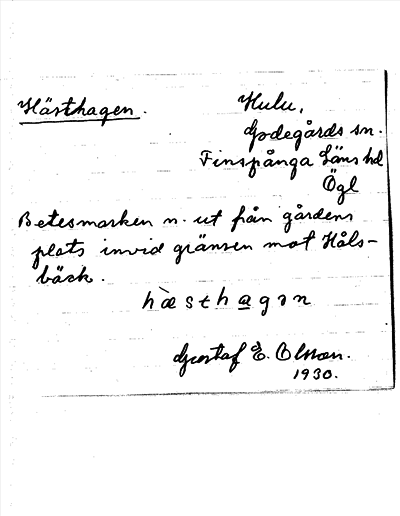 Hästhagen.
Hulu,
Godegårds sn.
Finspånga läns hd
Ögl
Betesmarken n. ut från gårdens
plats invid gränsen mot Håls-
bäck.
hæ̀sthagən
Gustaf E. Olsson.
1930.